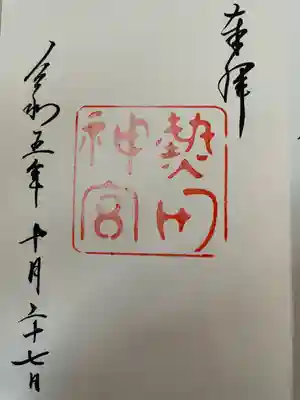 奉拝
熱田
神宮
令和五年十月二十七日